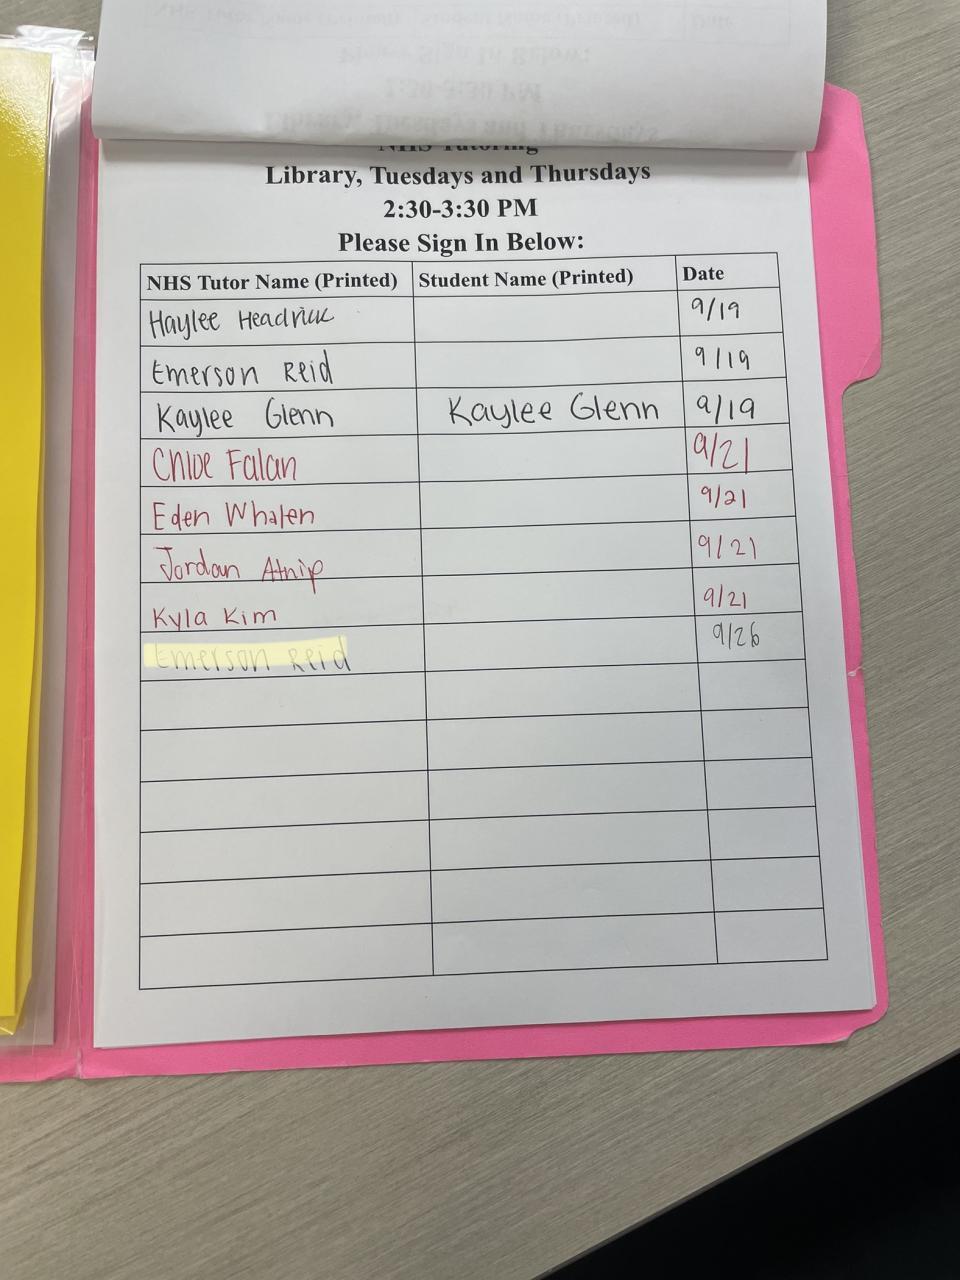 NHS Tutoring
Library, Tuesdays and Thursdays
2:30-3:30 PM
Please Sign In Below:
NHS Tutor Name (Printed) Student Name (Printed) Date
Haylee Headrick 9/19
Emerson Reid 9/19
Kaylee Glenn Kaylee Glenn 9/19
Chloe Falan 9/21
Eden Whalen 9/21
Jordan Atnip 9/21
Kyla Kim 9/21
Emerson Reid 9/26